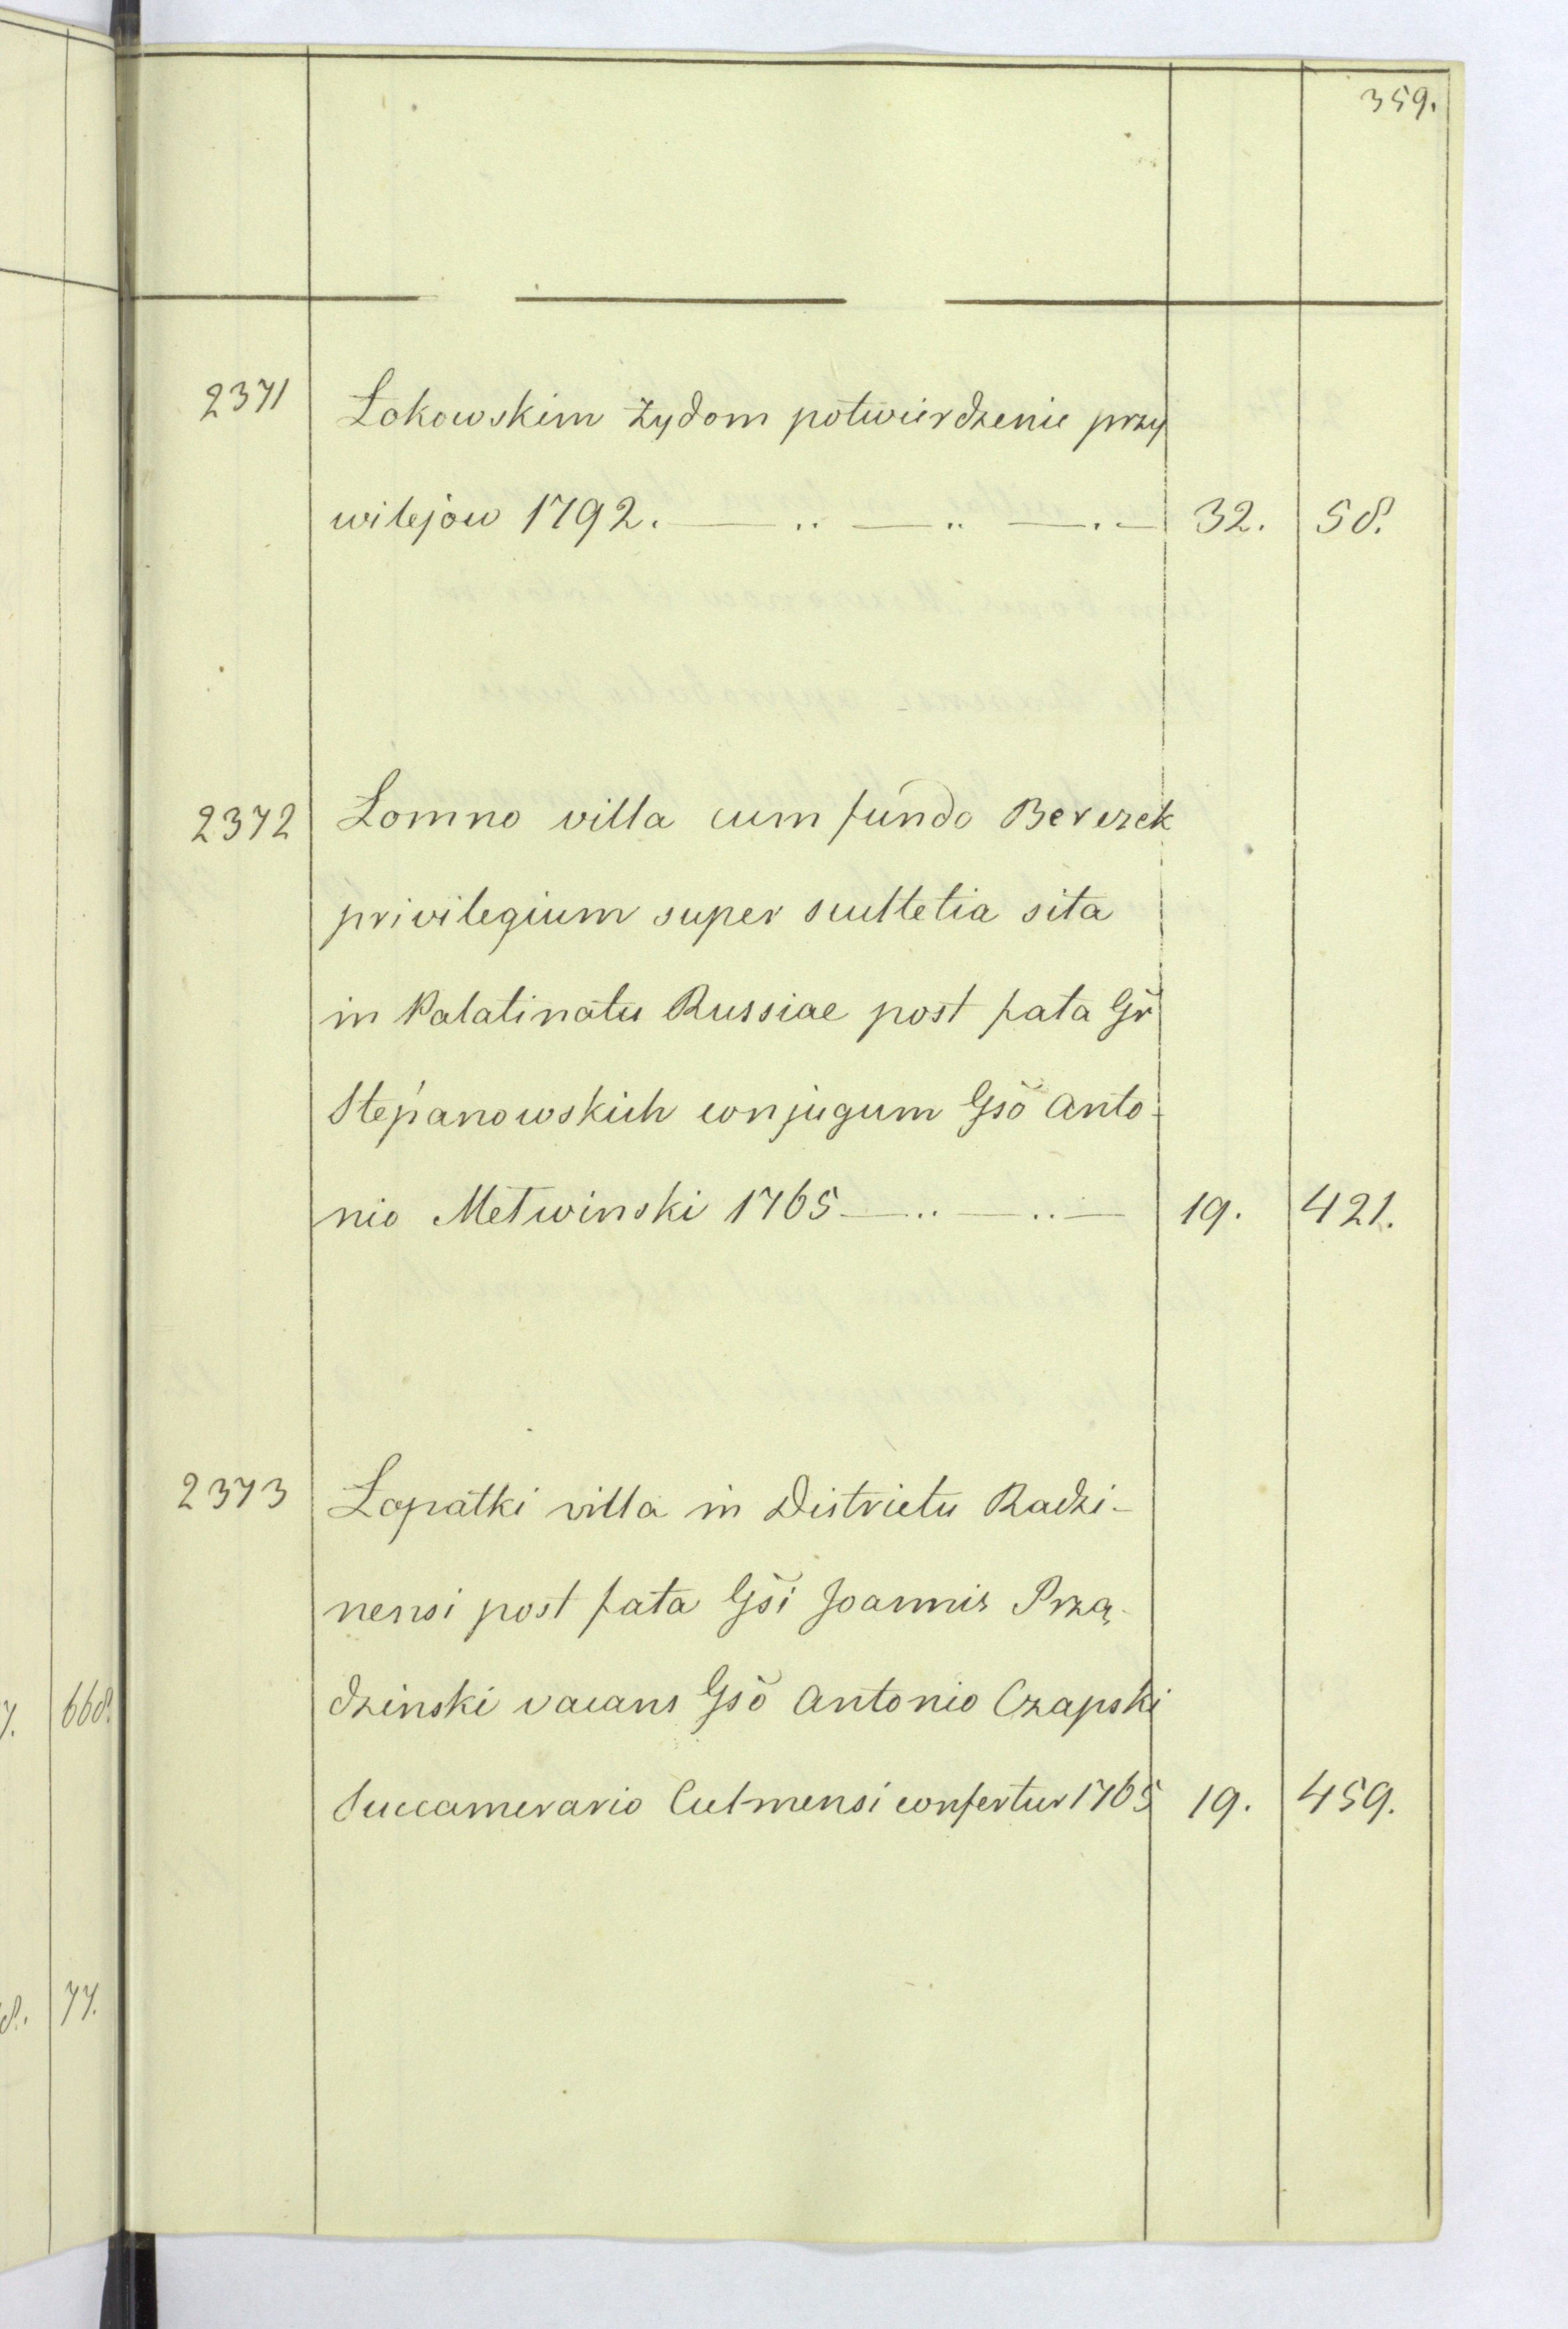 359.
2371 Łokowskim żydom potwierdzenie przy
wilejow 1792. — .. — .. — . — 32. 58.
2372 Łomno villa cum fundo Berezek
privilegium super scultetia sita
in Palatinatu Russiae post fata Gr
Stepanowskich conjugum Gso Anto-
nio Metwinski 1765 — .. — .. — 19. 421.
2373 Łopatki villa in Districtu Radzi-
nensi post fata Gsi Joannis Prza-
dzinski vacans Gso Antonio Czapski
Succamerario Culmensi confertur 1765 19. 459.
668.
77.